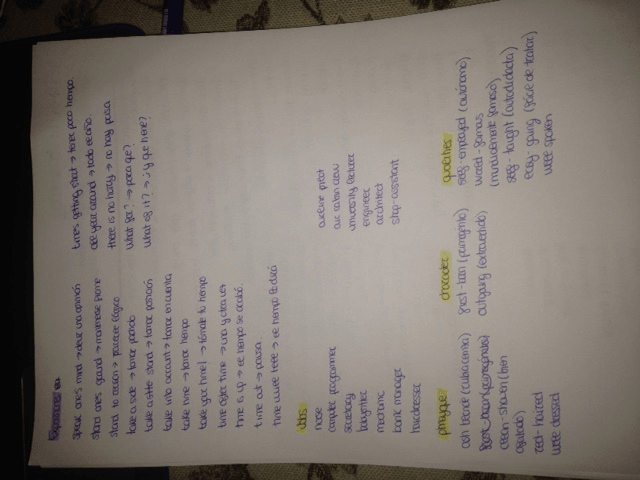 Expressions
speak ones mind → decir una opinión
stand ones ground → mantenerse firme
stand to reason → parecer lógico
take a side → tomar partido
take a stand → tomar posición
take into account → tomar en cuenta
take time → tomar tiempo
take your time! → tómate tu tiempo
time after time → una y otra vez
time is up → el tiempo se acabó.
time out → pausa
time will tell → el tiempo lo dirá
time's getting short → tener poco tiempo.
all year around → todo el año
there is no hurry → no hay prisa
what for? → para qué?
what of it? → ¿y qué tiene?
Jobs
nurse
computer programmer
secretary
mechanic
bank manager
hairdresser
airline pilot
air cabin crew
university lecturer
engineer
architect
shop-assistant
physique
ash blonde (rubia ceniza)
clean-shaven (bien
afeitado)
red-haired
well dressed
character
outgoing (extrovertido)
qualities
self employed (autónomo)
world-famous
(mundialmente famoso)
self-taught (autodidacta)
easy-going (fácil de tratar)
well spoken